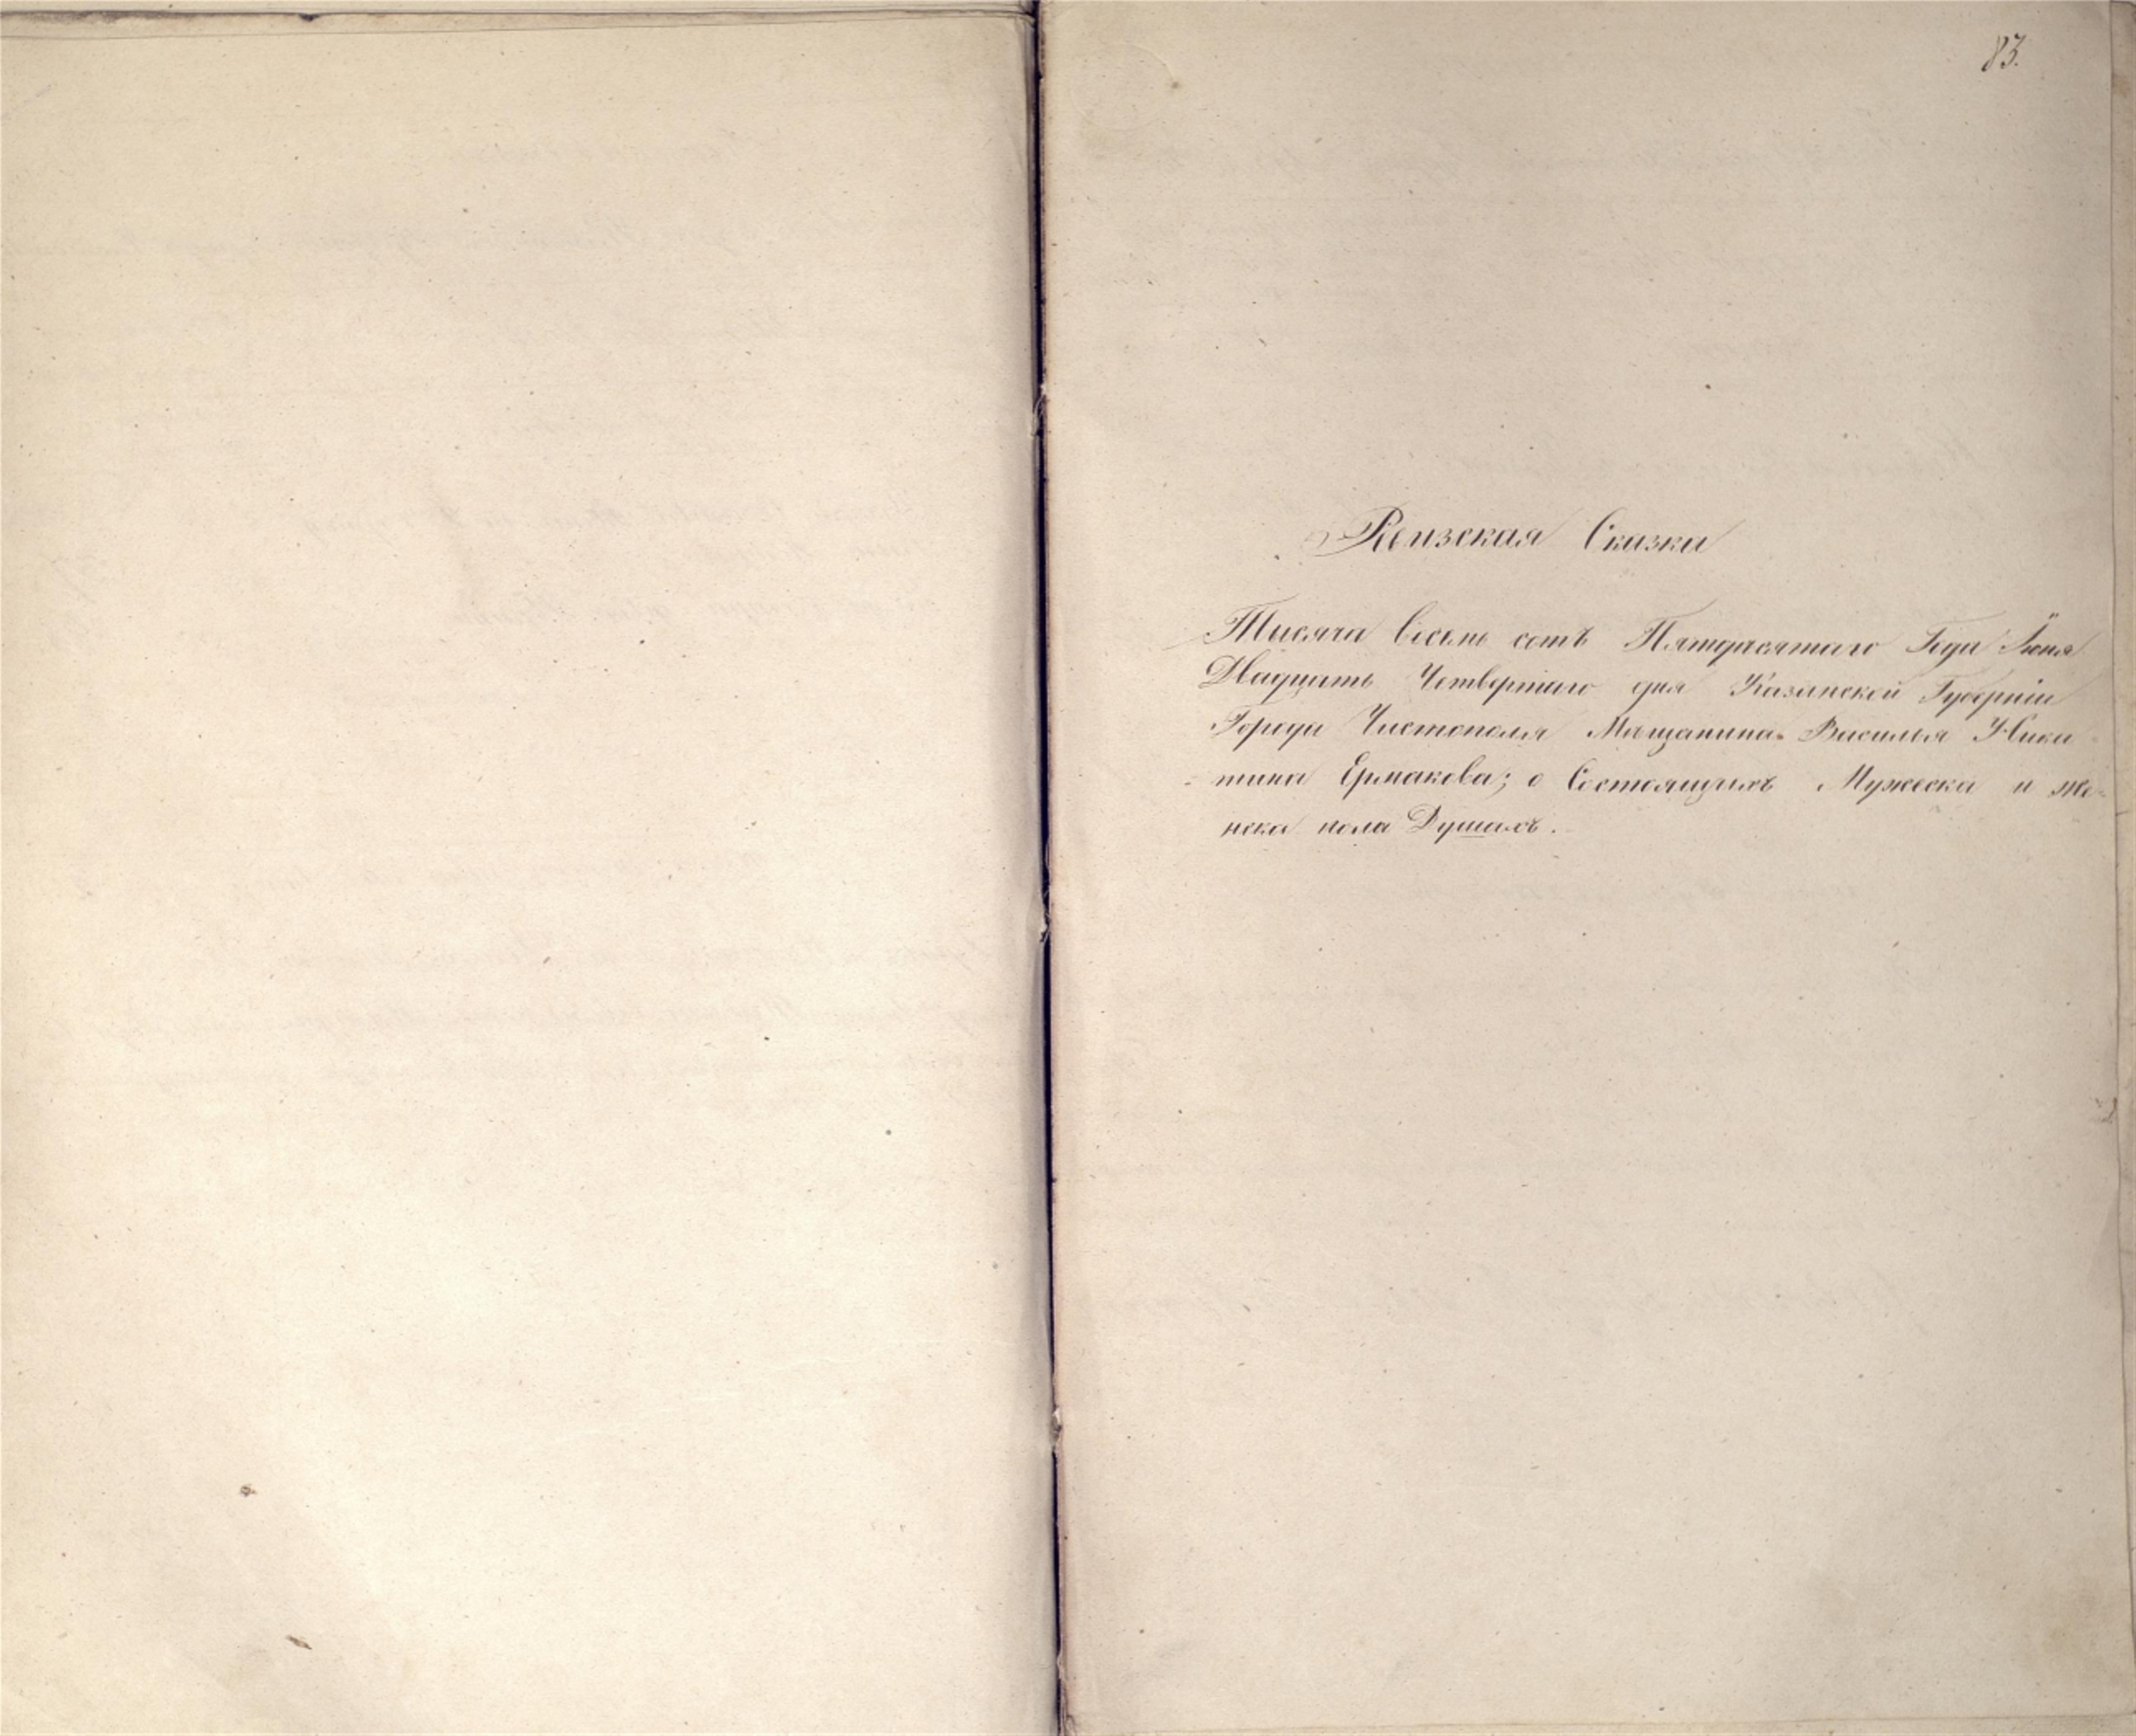 83.
Ревизская Сказка
Тысяча Восемь сотъ Пятдесятаго Года Іюня
Двадцать Четвертаго дня Казанской Губерніи
Города Чистополя Мѣщанина Василья Ники
тина Ермакова; о Состоящихъ Мужеска и же-
нска пола Душахъ.